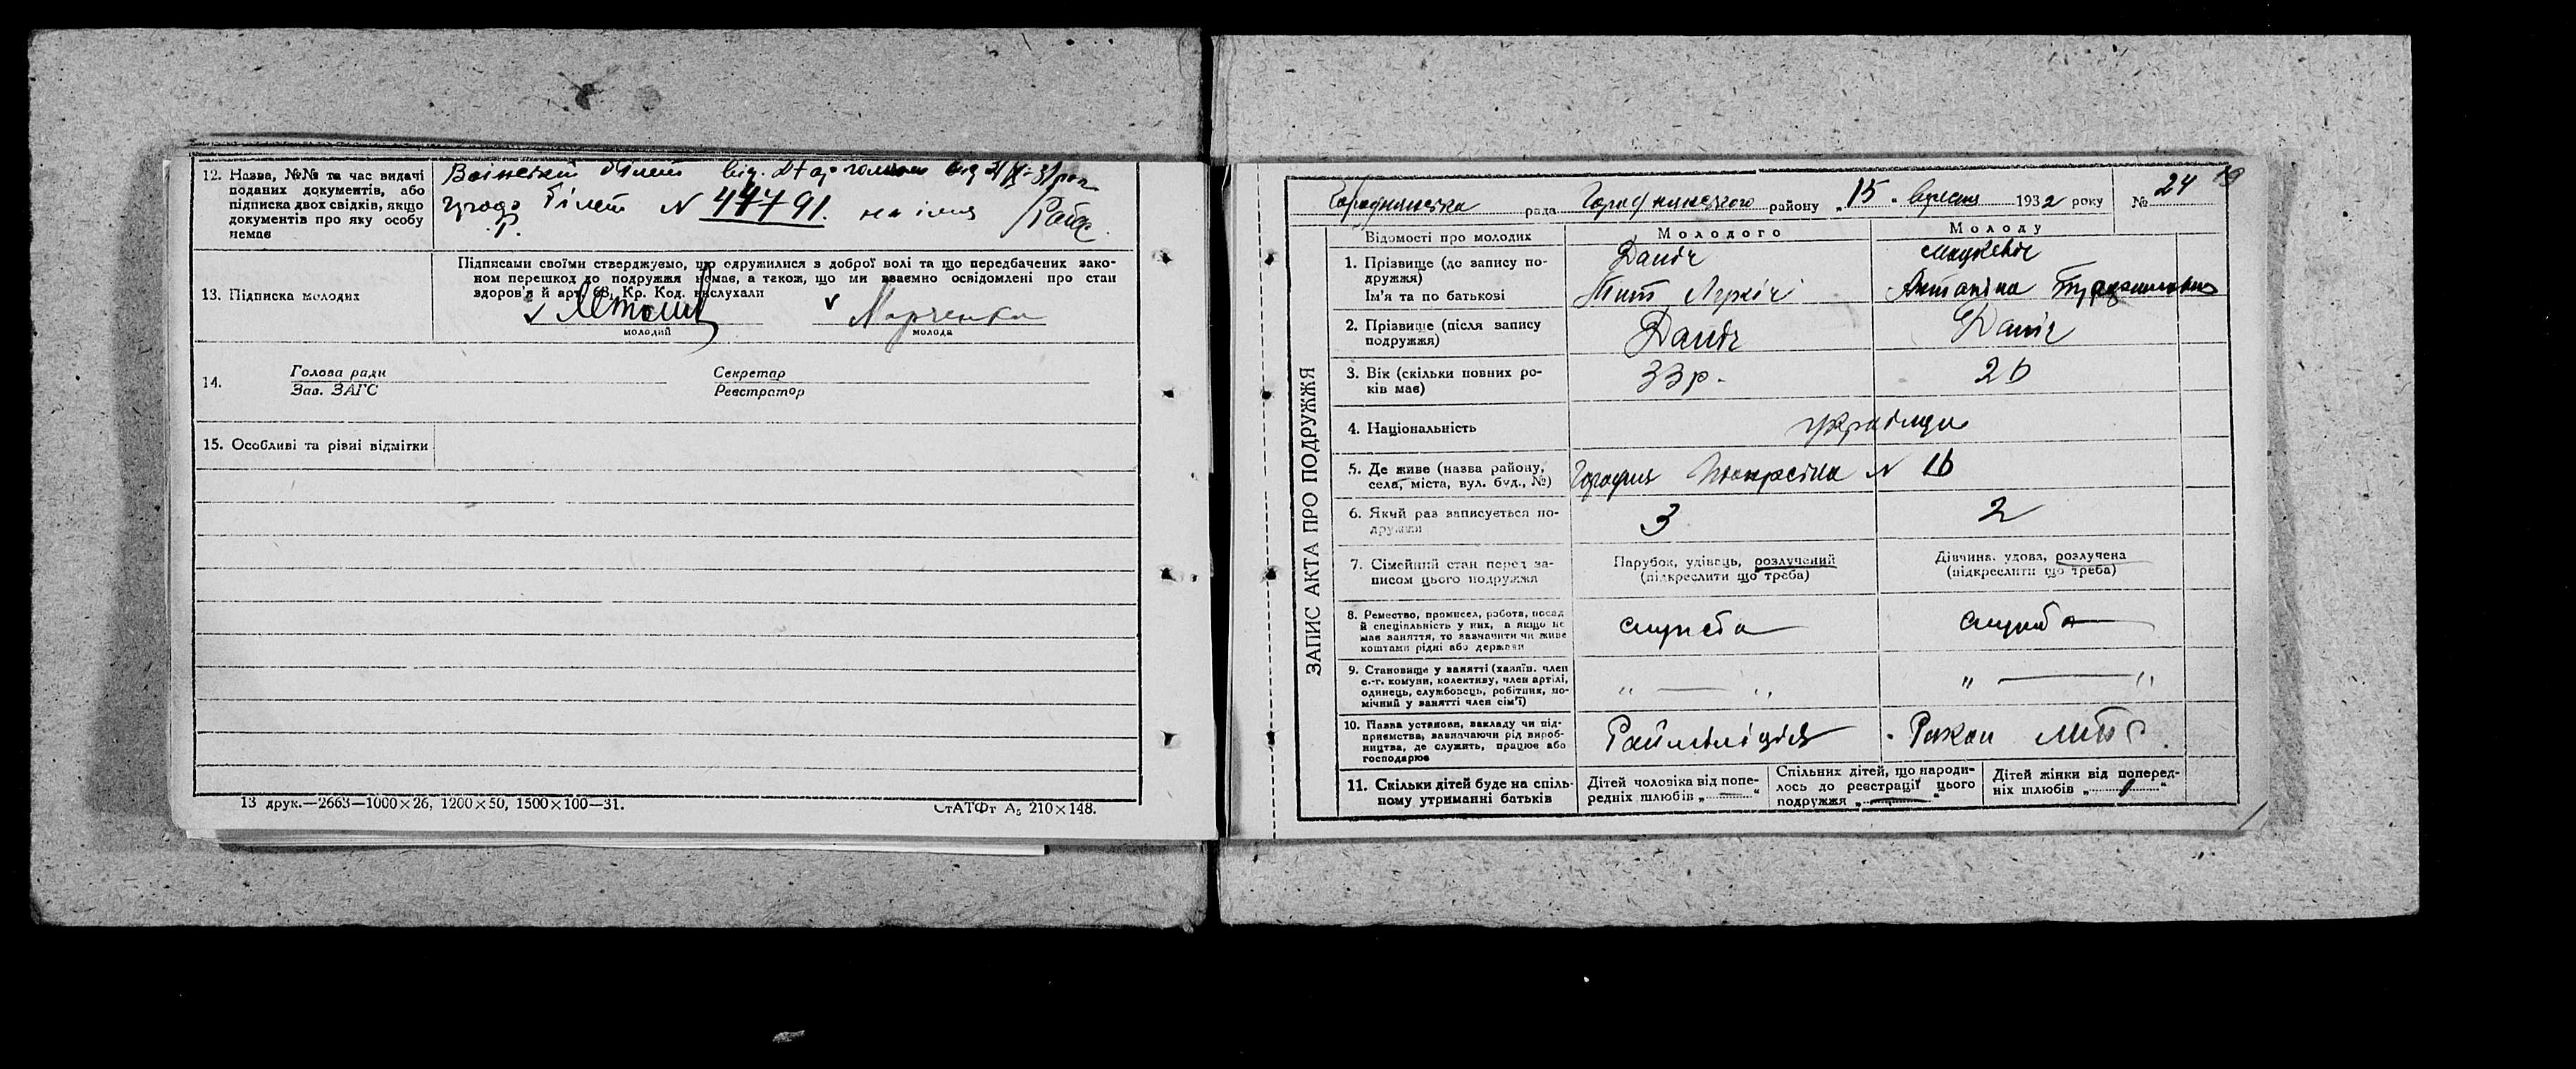 12. Назва, №№ та час видачі
поданих документів, або
підписка двох свідків, якщо
документів про яку особу
немає
білет
білет N 44791.
13. Підписка молодих
Підписами своїми стверджуємо, що одружилися з доброї волі та що передбачених зако-
ном перешкод до подружжя немає, а також, що ми взаємно освідомлені про стан
здоров'я й арт. 68, Кр. Код. вислухали
Марченко
молодий
молода
14.
Голова ради
Зав. ЗАГС
Секретар
Реєстратор
15. Особливі та різні відмітки
13 друк.—2663—1000×26, 1200×50, 1500×100—31.
СтАТФт А₅ 210×148.
ЗАПИС АКТА ПРО ПОДРУЖЖЯ
19
Городнянська рада Городнянського району „ 15 „ вересня 1932 року № 24
Відомості про молодих
Молодого
Молоду
1. Прізвище (до запису по-
дружжя)
Ім'я та по батькові
Даніч
Мацкевіч
Тит
Антаніна
2. Прізвище (після запису
подружжя)
Даніч
Даніч
3. Вік (скільки повних ро-
ків має)
33 р.
26
4. Національність
українці
5. Де живе (назва району,
села, міста, вул. буд., №)
Городня N 16
6. Який раз записується по-
дружжя
3
2
7. Сімейний стан перед за-
писом цього подружжя
Парубок, удівець, розлучений
(підкреслити що треба)
Дівчина, удова, розлучена
(підкреслити що треба)
8. Ремество, промисел, робота, посад
й спеціальність у них, а якщо не
має заняття, то зазначити чи живе
коштами рідні або держави
служба
служба
9. Становище у занятті (хазяїн, член
с.-г. комуни, колективу, член артілі,
одинець, службовець, робітник, по-
мічний у занятті член сім'ї)
„ — „
„ — „
10. Назва установи, закладу чи під-
приємства, зазначаючи рід вироб-
ництва, де служить, працює або
господарює
Райміліція
11. Скільки дітей буде на спіль-
ному утриманні батьків
Дітей чоловіка від попе-
редніх шлюбів „ — “
Спільних дітей, що народи-
лось до реєстрації цього
подружжя „ — “
Дітей жінки від поперед-
ніх шлюбів „ 1 “